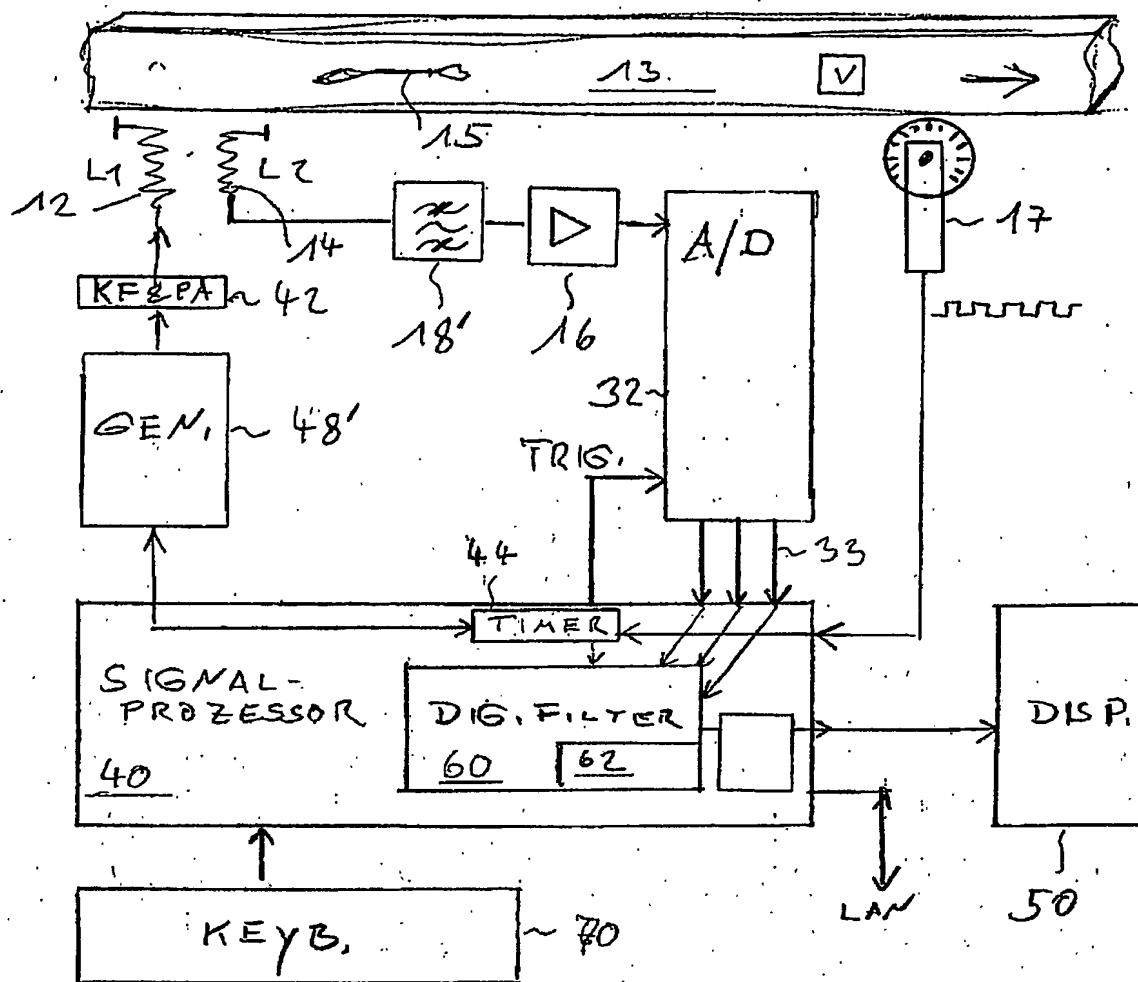 13.
V
15
L1
L2
12
14
17
A/D
42
18'
16
32
GEN.
48'
TRIG.
33
44
TIMER
SIGNAL-
PROZESSOR
40
DIG. FILTER
60
62
DISP.
LAN
50
KEYB.
70